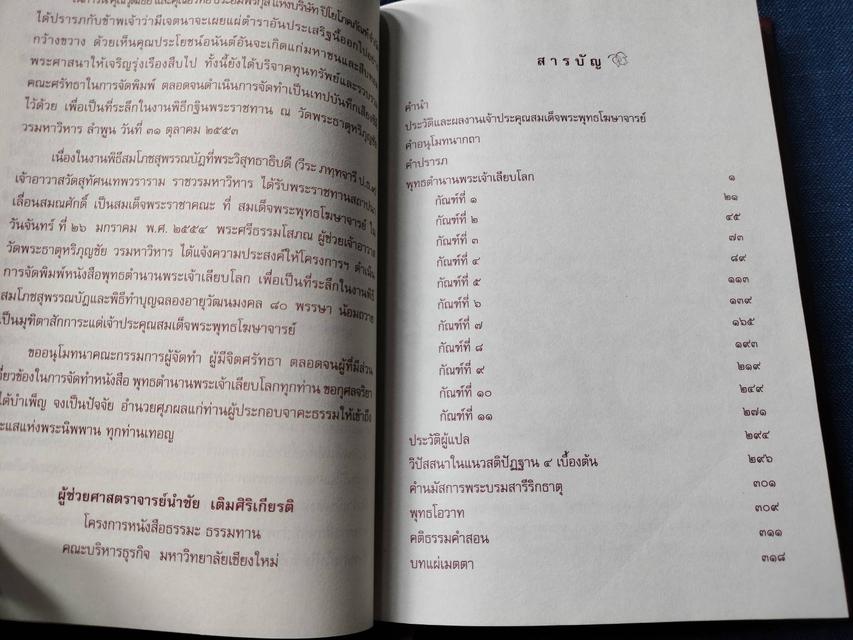 ได้ปรารภกับข้าพเจ้าว่ามีเจตนาจะเผยแผ่ตำราอันประเสริฐนี้ออกไปอย่าง
กว้างขวาง ด้วยเห็นคุณประโยชน์อนันต์อันจะเกิดแก่มหาชนและสืบ
พระศาสนาให้เจริญรุ่งเรืองสืบไป ทั้งนี้ยังได้บริจาคทุนทรัพย์และรวบรวม
คณะศรัทธาในการจัดพิมพ์ ตลอดจนดำเนินการจัดทำเป็นเทปบันทึกเสียง
ไว้ด้วย เพื่อเป็นที่ระลึกในงานพิธีกฐินพระราชทาน ณ วัดพระธาตุหริภุญชัย
วรมหาวิหาร ลำพูน วันที่ ๓๑ ตุลาคม ๒๕๕๓
เนื่องในงานพิธีสมโภชสุพรรณบัฏที่พระวิสุทธาธิบดี (วีระ ภทฺทจารี ป.ธ.๙)
เจ้าอาวาสวัดสุทัศนเทพวราราม ราชวรมหาวิหาร ได้รับพระราชทานสถาปนา
เลื่อนสมณศักดิ์ เป็นสมเด็จพระราชาคณะ ที่ สมเด็จพระพุทธโฆษาจารย์ ใน
วันจันทร์ ที่ ๒๖ มกราคม พ.ศ. ๒๕๕๔ พระศรีธรรมโสภณ ผู้ช่วยเจ้าอาวาส
วัดพระธาตุหริภุญชัย วรมหาวิหาร ได้แจ้งความประสงค์ให้โครงการฯ ดำเนิน
การจัดพิมพ์หนังสือพุทธตำนานพระเจ้าเลียบโลก เพื่อเป็นที่ระลึกในงานพิธี
สมโภชสุพรรณบัฏและพิธีทำบุญฉลองอายุวัฒนมงคล ๘๐ พรรษา น้อมถวาย
เป็นมุฑิตาสักการะแด่เจ้าประคุณสมเด็จพระพุทธโฆษาจารย์
ขออนุโมทนาคณะกรรมการผู้จัดทำ ผู้มีจิตศรัทธา ตลอดจนผู้ที่มีส่วน
เกี่ยวข้องในการจัดทำหนังสือ พุทธตำนานพระเจ้าเลียบโลกทุกท่าน ขอกุศลจริยา
ได้บำเพ็ญ จงเป็นปัจจัย อำนวยศุภผลแก่ท่านผู้ประกอบจาคะธรรมให้เข้าถึง
กระแสแห่งพระนิพพาน ทุกท่านเทอญ
ผู้ช่วยศาสตราจารย์นำชัย เติมศิริเกียรติ
โครงการหนังสือธรรมะ ธรรมทาน
คณะบริหารธุรกิจ มหาวิทยาลัยเชียงใหม่
สารบัญ
คำนำ
ประวัติและผลงานเจ้าประคุณสมเด็จพระพุทธโฆษาจารย์
คำอนุโมทนากถา
คำปรารภ
พุทธตำนานพระเจ้าเลียบโลก ๑
กัณฑ์ที่ ๑ ๒๑
กัณฑ์ที่ ๒ ๔๕
กัณฑ์ที่ ๓ ๗๓
กัณฑ์ที่ ๔ ๘๙
กัณฑ์ที่ ๕ ๑๑๓
กัณฑ์ที่ ๖ ๑๓๙
กัณฑ์ที่ ๗ ๑๖๕
กัณฑ์ที่ ๘ ๑๙๓
กัณฑ์ที่ ๙ ๒๑๙
กัณฑ์ที่ ๑๐ ๒๔๙
กัณฑ์ที่ ๑๑ ๒๗๑
ประวัติผู้แปล ๒๙๔
วิปัสสนาในแนวสติปัฏฐาน ๔ เบื้องต้น ๒๙๖
คำนมัสการพระบรมสารีริกธาตุ ๓๐๑
พุทธโอวาท ๓๐๙
คติธรรมคำสอน ๓๑๑
บทแผ่เมตตา ๓๑๘